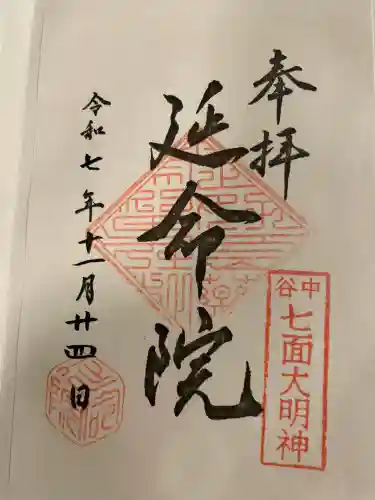 奉拝
延命院
令和七年十一月廿四日
谷中
七面大明神